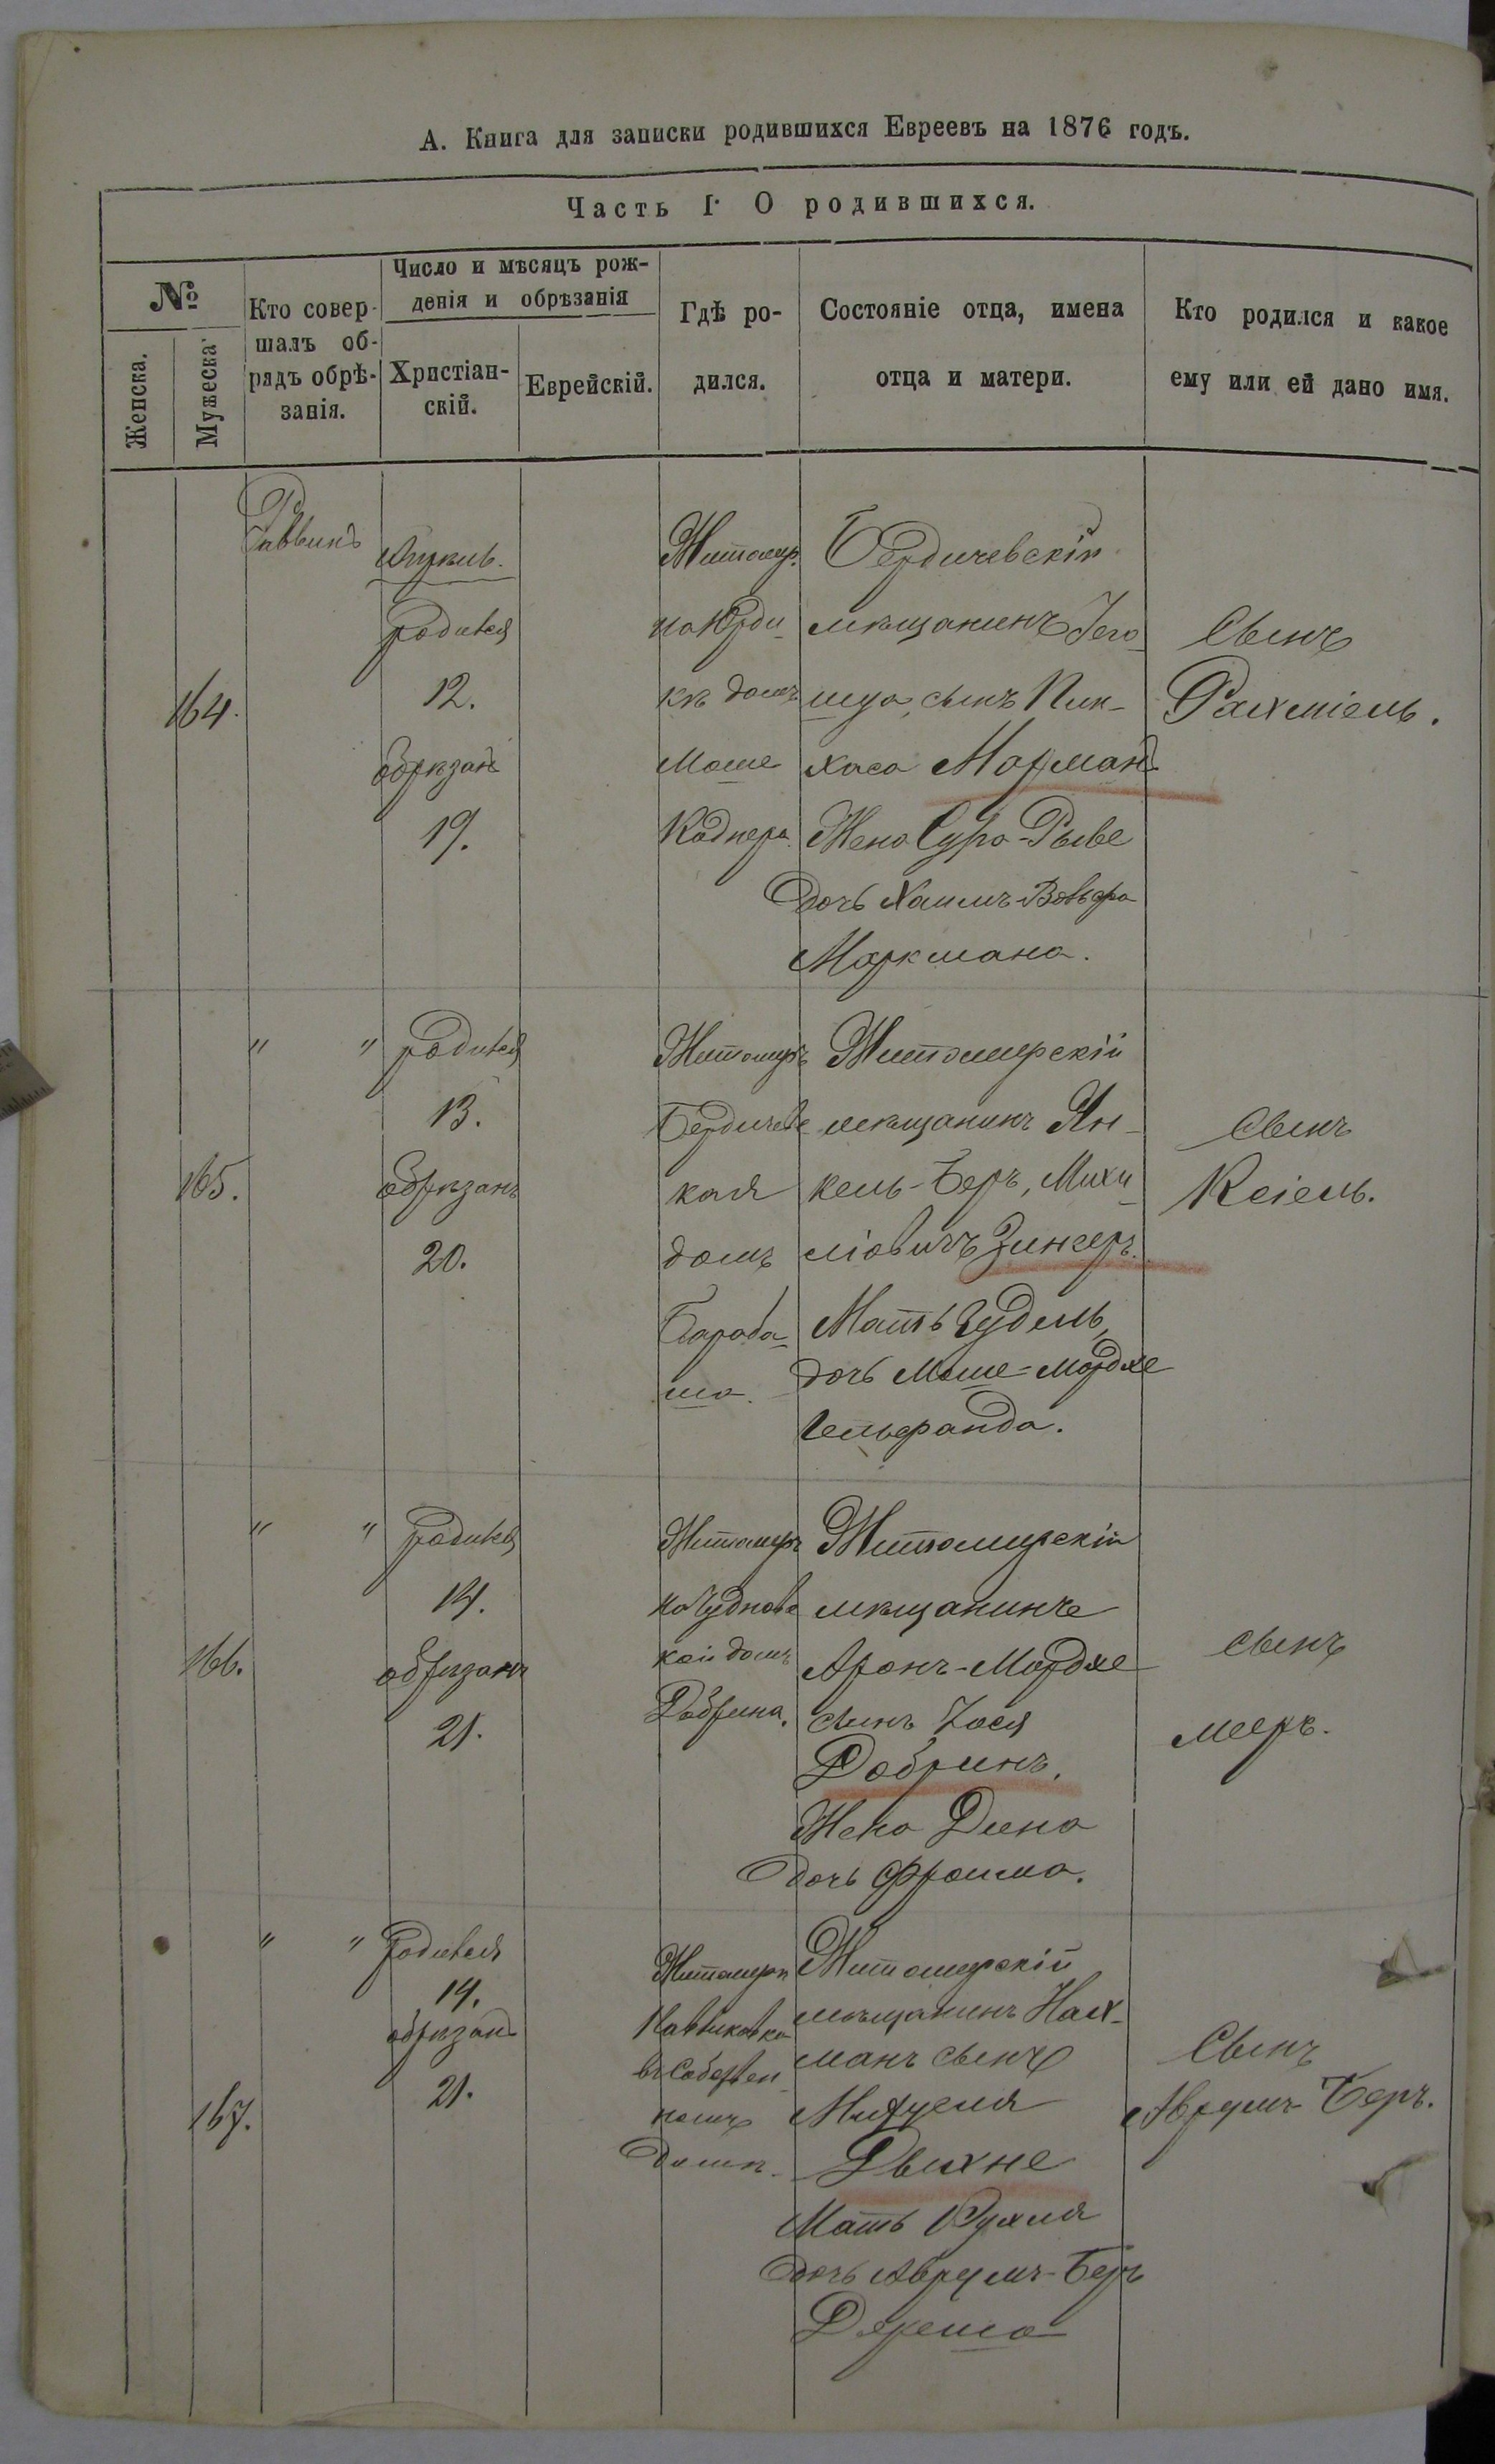 А. Книга для записки родившихся Евреевъ на 1876 годъ.
Часть I. О родившихся.
№
Женска.
Мужеска.
Кто совер-
шалъ об-
рядъ обрѣ-
занія.
Число и мѣсяцъ рож-
денія и обрѣзанія
Христіан-
скій.
Еврейскій.
Гдѣ ро-
дился.
Состояніе отца, имена
отца и матери.
Кто родился и какое
ему или ей дано имя.
164.
Раввинъ
родился
12.
обрѣзанъ
19.
Житомир.
кѣ домъ
Моше
Бердичевскій
мѣщанинъ Іего-
шуа, сынъ Пин-
хаса Марманъ
Жена Сура-Рыве
дочь Хаимъ-Вольфа
Маркмана.
Сынъ
Рахміель.
165.
" "
родился
13.
обрѣзанъ
20.
Житомиръ
Бердичевс
кая
домъ
Бараба-
ша.
Житомирскій
мѣщанинъ Ян-
кель-Беръ, Михи
ліовичъ Зингеръ.
Мать Эудель,
дочь Моше-Мордхе
Гельфанда.
Сынъ
Ксіель.
166.
" "
родился
14.
обрѣзанъ
21.
Житомиръ
на Чудновс
кой домъ
Добрина.
Житомирскій
мѣщанинъ
Аронъ-Мордхе
сынъ Іося
Добринъ.
Жена Дина
дочь Фроима.
сынъ
Мееръ.
167.
" "
родился
14.
обрѣзанъ
21.
Житомиръ
въ собствен
номъ
домѣ.
Житомирскій
мѣщанинъ Нах-
манъ сынъ
Двихне
Мать Рухля
дочь Аврумъ-Беръ
Сынъ
Аврумъ-Беръ.